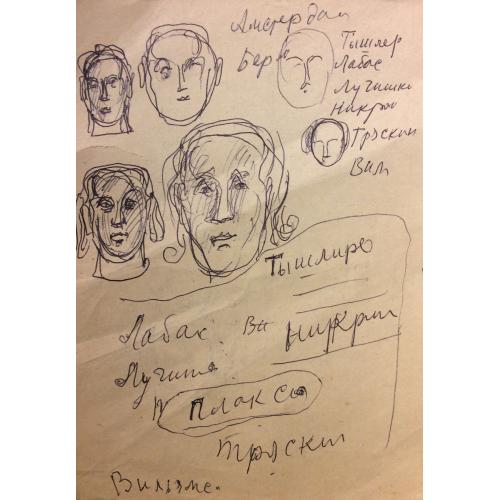 Амстердам
Берн
Тышлер
Лабас
Лучишки
Никри
Трэскин
Вил
Тышлиро
Лабас Ви Никрит
Лучиш
Плаксы
Трэскин
Вильямс